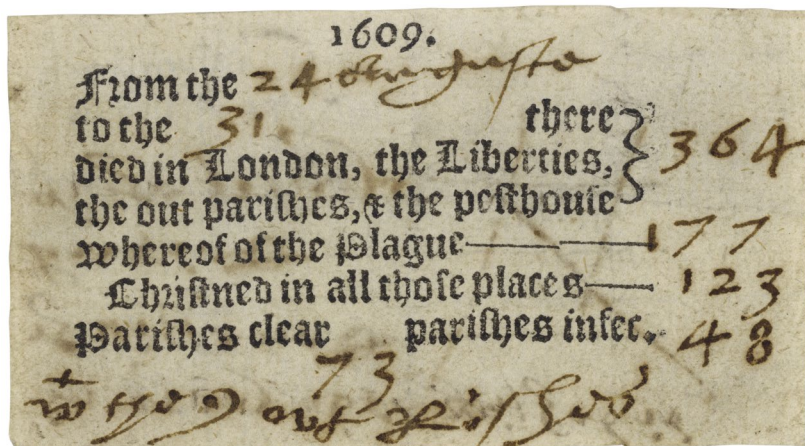 1609.
From the 24 Auguste
to the 31 there
died in London, the Liberties, 364
the out parishes, & the pesthouse
whereof of the Plague 177
Christned in all those places 123
Parishes clear 73 parishes infec. 48
wt the 9 out